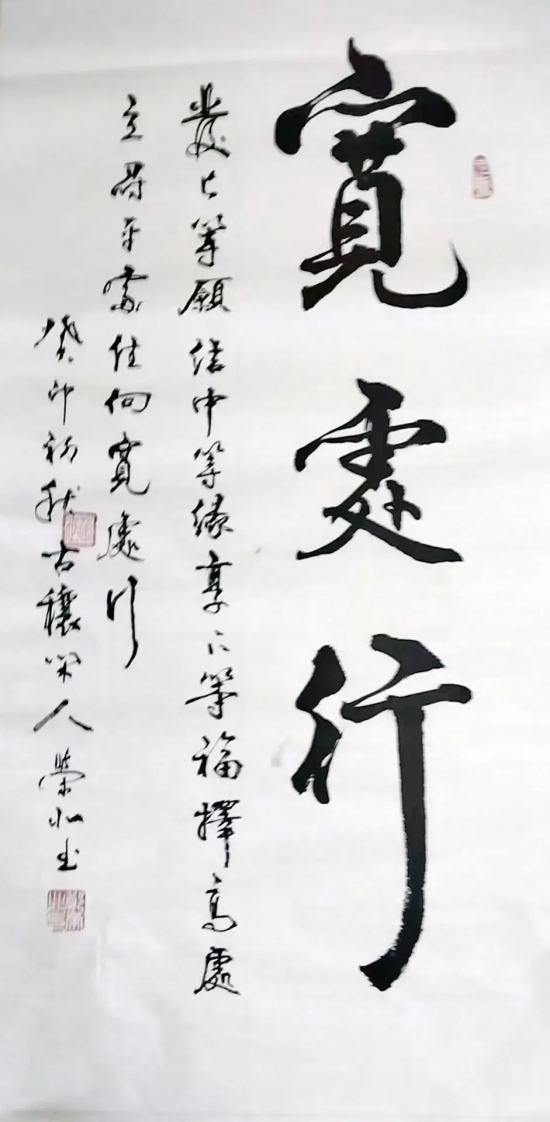 寬處行
發上等願結中等緣享下等福擇高處
立尋平處住向寬處行
癸卯初秋古穰閑人榮書